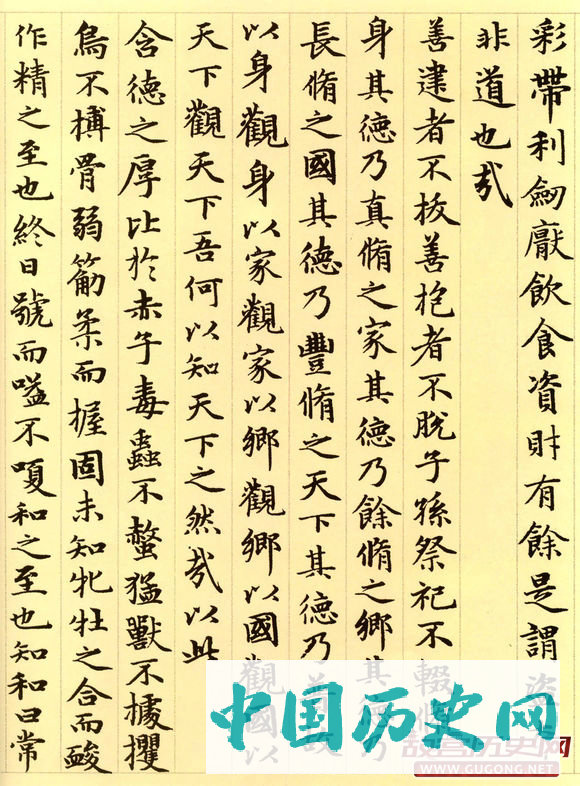 彩帶利劒厭飲食資財有餘是謂盜
非道也哉
善建者不拔善抱者不脫子孫祭祀不輟
身其德乃真脩之家其德乃餘脩之鄉其德乃
長脩之國其德乃豐脩之天下其德乃
以身觀身以家觀家以鄉觀鄉以國觀國以
天下觀天下吾何以知天下之然哉以此
含德之厚比於赤子毒蟲不螫猛獸不據攫
鳥不搏骨弱筋柔而握固未知牝牡之合而酸
作精之至也終日號而嗌不嗄和之至也知和曰常
中国历史网
故宫历史网
WWW.GUGONG.NET